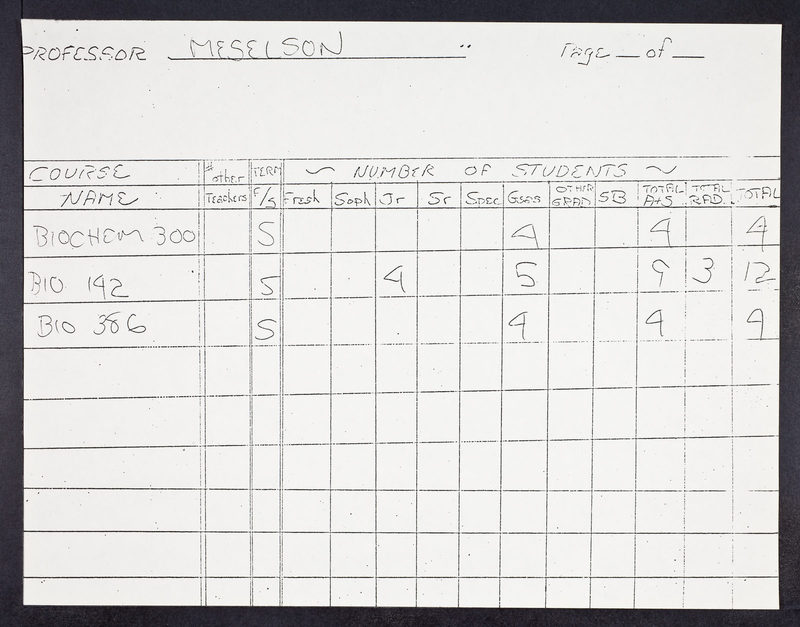 PROFESSOR MESELSON Page __ of __
COURSE # other TERM ~ NUMBER OF STUDENTS ~
NAME Teachers F/S Fresh Soph Jr Sr Spec GSAS OTHER GRAD SB TOTAL A+S TOTAL RAD. TOTAL
BIOCHEM 300 S 4 4 4
BIO 142 S 4 5 9 3 12
BIO 386 S 4 4 4